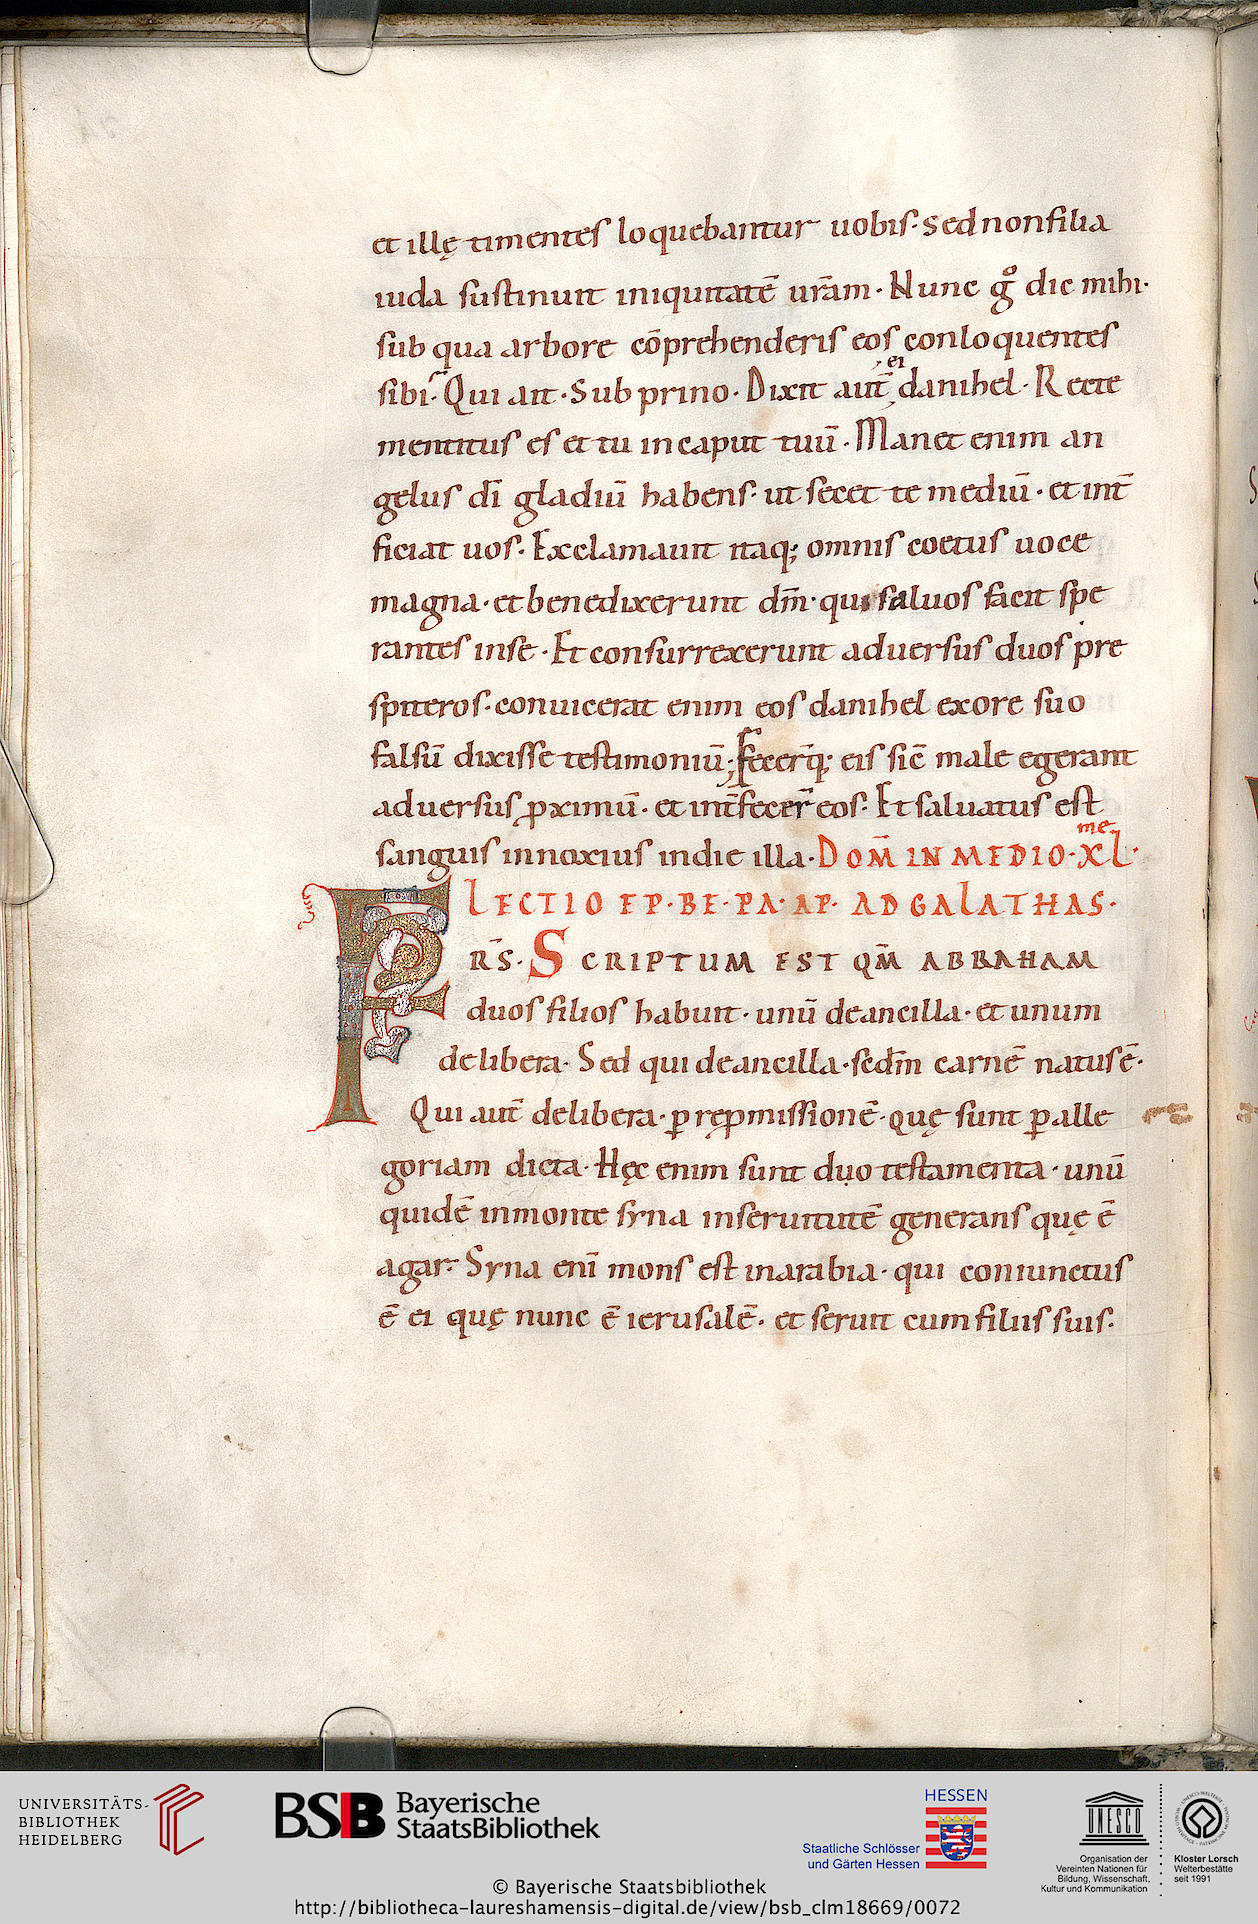 et illę timentes loquebantur uobis· sed non filia
iuda sustinuit iniquitatē ur̄am· Nunc gͦ dic mihi·
sub qua arbore cōprehenderis eos conloquentes
sibi· Qui ait· Sub prino· Dixit aut̄ ei danihel· Recte
mentitus es et tu in caput tuū· Manet enim an
gelus dī gladiū habens· ut secet te mediū· et int̄
ficiat uos· Exclamauit itaq; omnis coetus uoce
magna· et benedixerunt dm̄· qui saluos facit spe
rantes in se· Et consurrexerunt aduersus duos pre
spiteros· conuicerat enim eos danihel ex ore suo
falsū dixisse testimoniū; Fecer̄q; eis sic̄ male egerant
aduersus ꝓximū· et int̄fecer̄ eos· Et saluatus est
sanguis innoxius in die illa· DOM̄ IN MEDIO· XL·me
LECTIO EP· BE· PA· AP· AD GALATHAS·
FR̄S· SCRIPTUM EST QM̄ ABRAHAM
duos filios habuit· unū de ancilla· et unum
de libera· Sed qui de ancilla· scdm̄ carnē natus ē·
Qui aut̄ de libera· ꝑ reꝓmissionē· quę sunt ꝑ alle
goriam dicta· Hęc enim sunt duo testamenta· unū
quidē in monte syna in seruitutē generans quę ē
agar· Syna enī mons est in arabia· qui coniunctus
ē ei quę nunc ē ierusalē· et seruit cum filiis suis·
UNIVERSITÄTS-
BIBLIOTHEK
HEIDELBERG
BSB Bayerische
StaatsBibliothek
HESSEN
Staatliche Schlösser
und Gärten Hessen
UNESCO
Organisation der
Vereinten Nationen für
Bildung, Wissenschaft,
Kultur und Kommunikation
Kloster Lorsch
Welterbestätte
seit 1991
© Bayerische Staatsbibliothek
http://bibliotheca-laureshamensis-digital.de/view/bsb_clm18669/0072